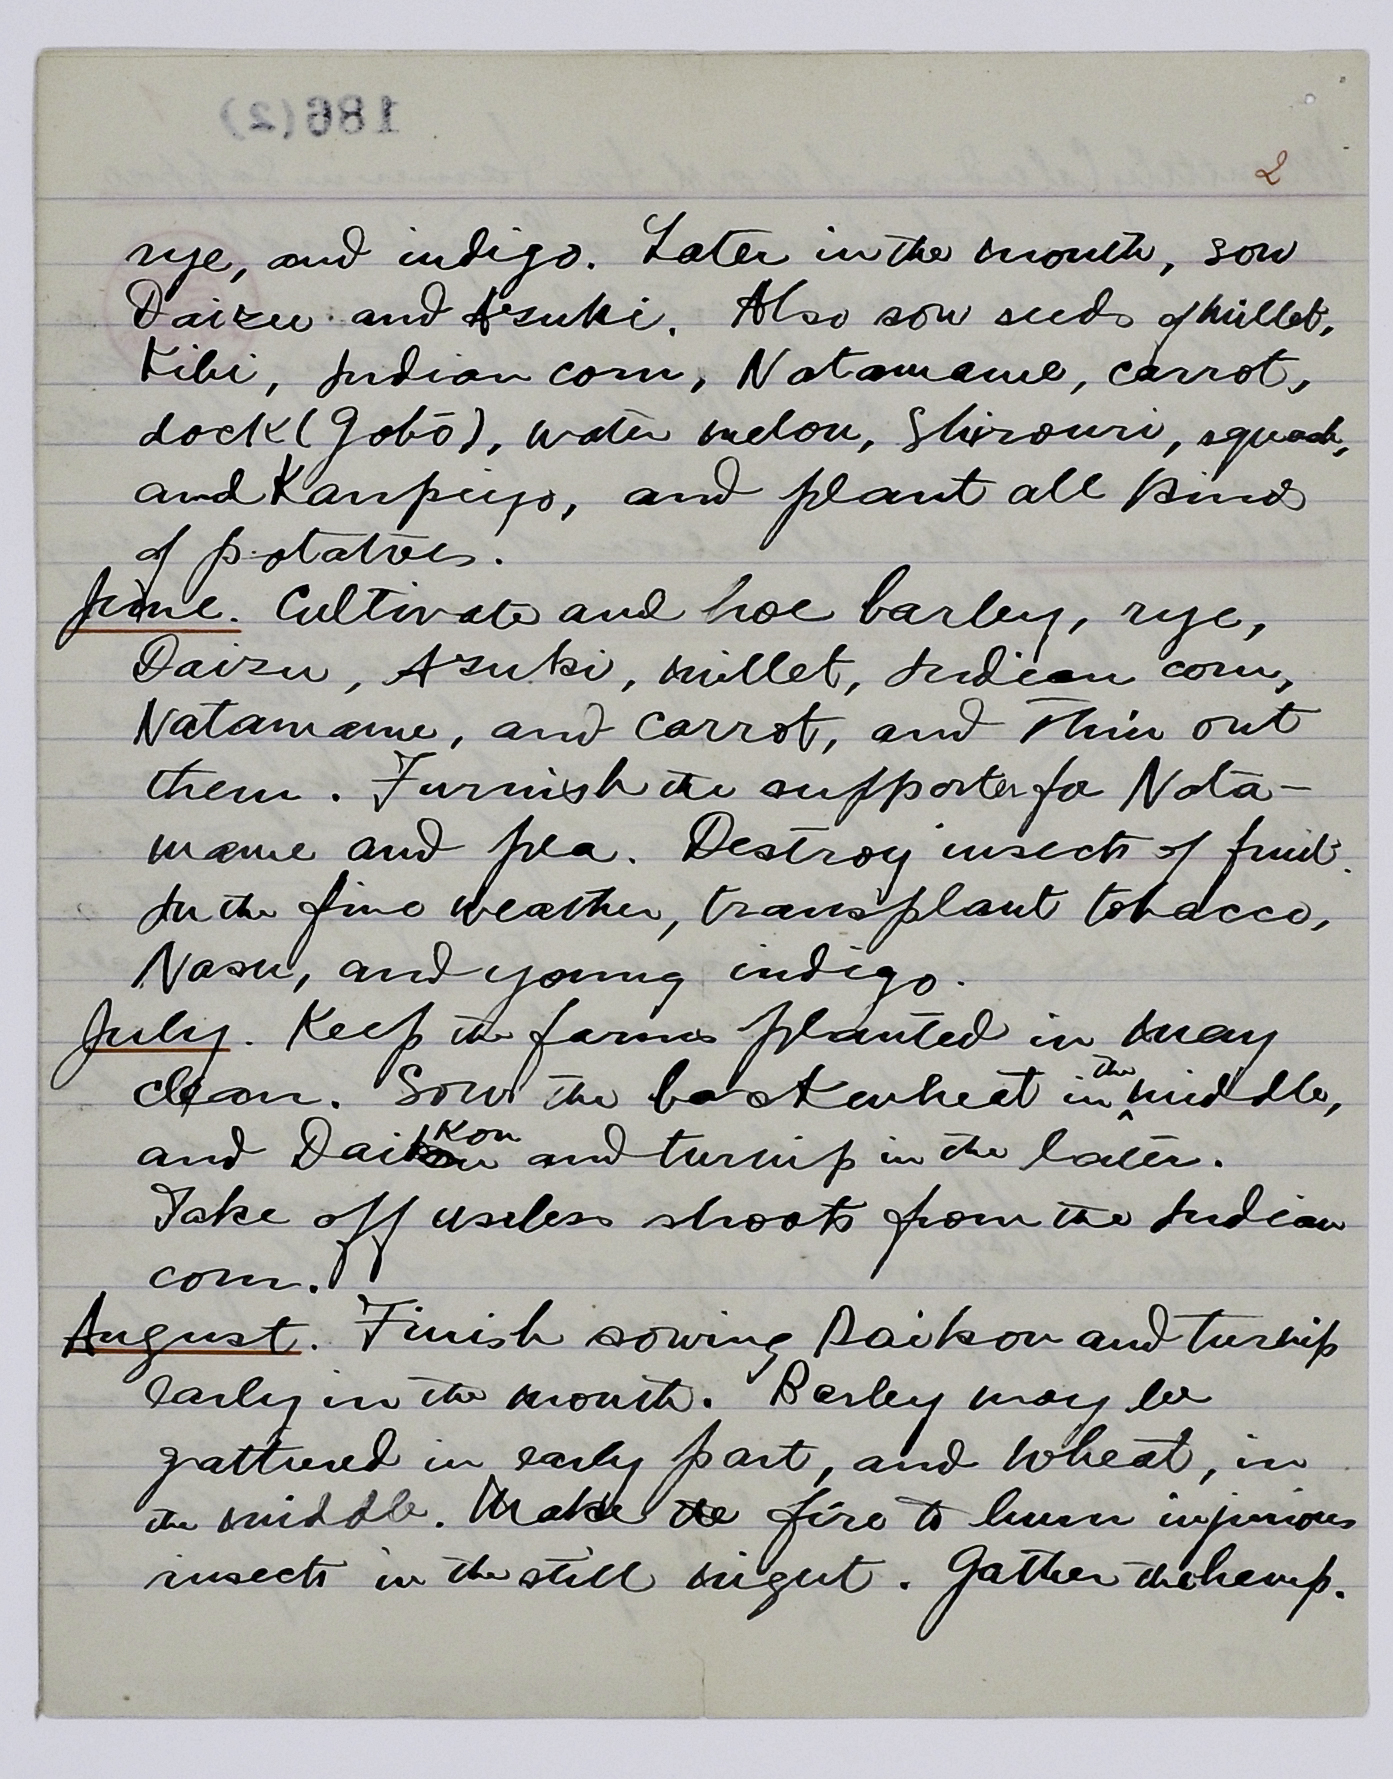 186(2)
2
rye, and indigo. Later in the month, sow
Daizu and Azuki. Also sow seeds of millet,
Kibi, Indian corn, Natamame, carrot,
dock (Gobō), water melon, Shirouri, squash,
and Kanpiyo, and plant all kind
of potatoes.
June. Cultivate and hoe barley, rye,
Daizu, Azuki, millet, Indian corn,
Natamame, and carrot, and Thin out
them. Furnish the supporter for Nata-
mame and pea. Destroy insects of fruit.
In the fine weather, transplant tobacco,
Nasu, and young indigo.
July. Keep the farms planted in may
clean. Sow the backwheat in the middle,
and Daikon and turnip in the later.
Take off useless shoots from the Indian
corn.
August. Finish sowing Daikon and turnip
early in the month. Barley may be
gattured in early part, and wheat, in
the middle. Make the fire to burn injurious
insects in the still night. Gather the hemp.